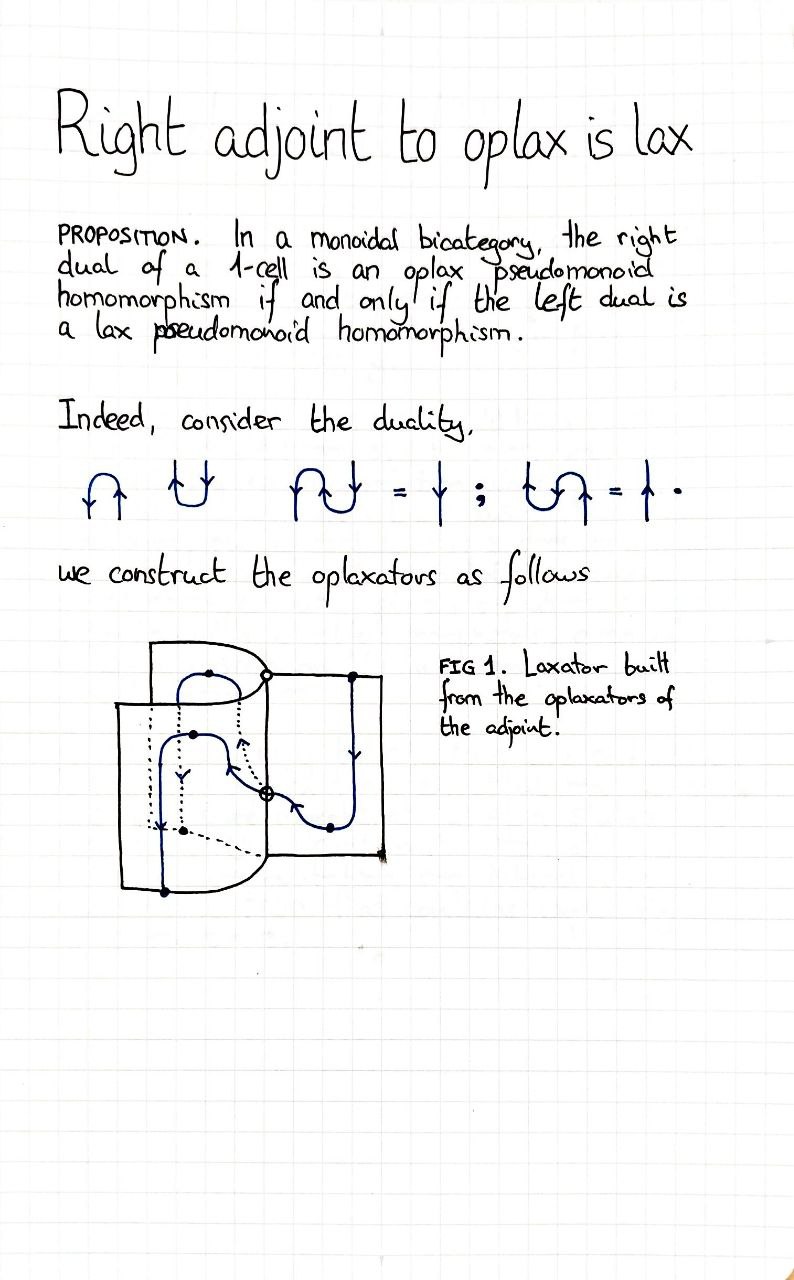 Right adjoint to oplax is lax
PROPOSITION. In a monoidal bicategory, the right
dual of a 1-cell is an oplax pseudomonoid
homomorphism if and only if the left dual is
a lax pseudomonoid homomorphism.
Indeed, consider the duality,
= ; = .
we construct the oplaxators as follows
FIG 1. Laxator built
from the oplaxators of
the adjoint.